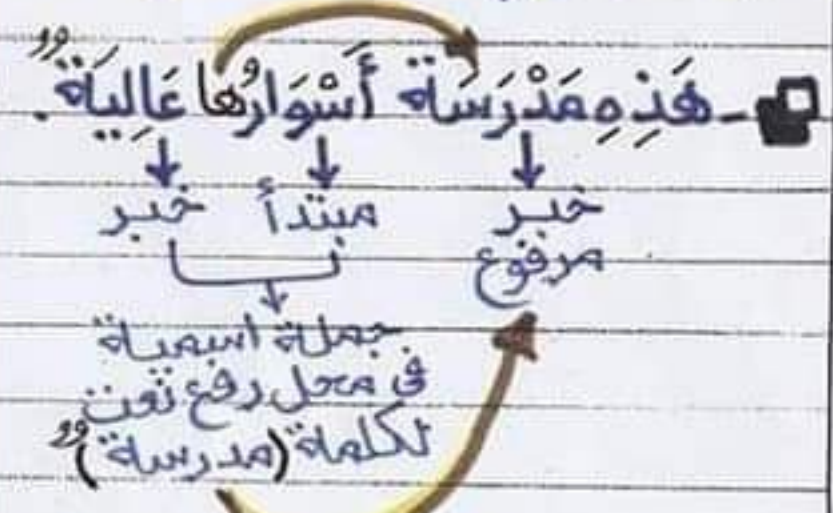 - هَذِهِ مَدْرَسَة أَسْوَارُها عَالِيَةٌ.
خبر مبتدأ خبر
مرفوع
جملة اسمية
فى محل رفع نعت
لكلمة (مدرسةٌ)